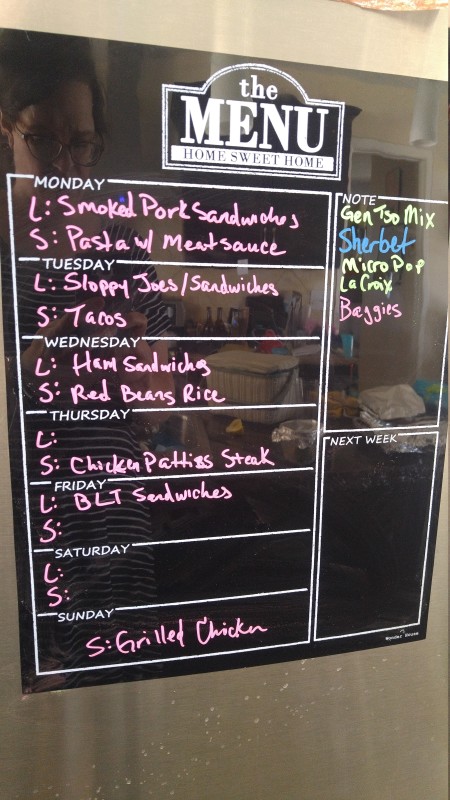 the
MENU
HOME SWEET HOME
MONDAY
L: Smoked Pork Sandwiches
S: Pasta w/ Meat sauce
TUESDAY
L: Sloppy Joes/Sandwiches
S: Tacos
WEDNESDAY
L: Ham Sandwiches
S: Red Beans Rice
THURSDAY
L:
S: Chicken Pattiss Steak
FRIDAY
L: BLT Sandwiches
S:
SATURDAY
L:
S:
SUNDAY
S: Grilled Chicken
NOTE
Gen Tso Mix
Sherbet
Micro Pop
La Croix
Baggies
NEXT WEEK
Wonder House